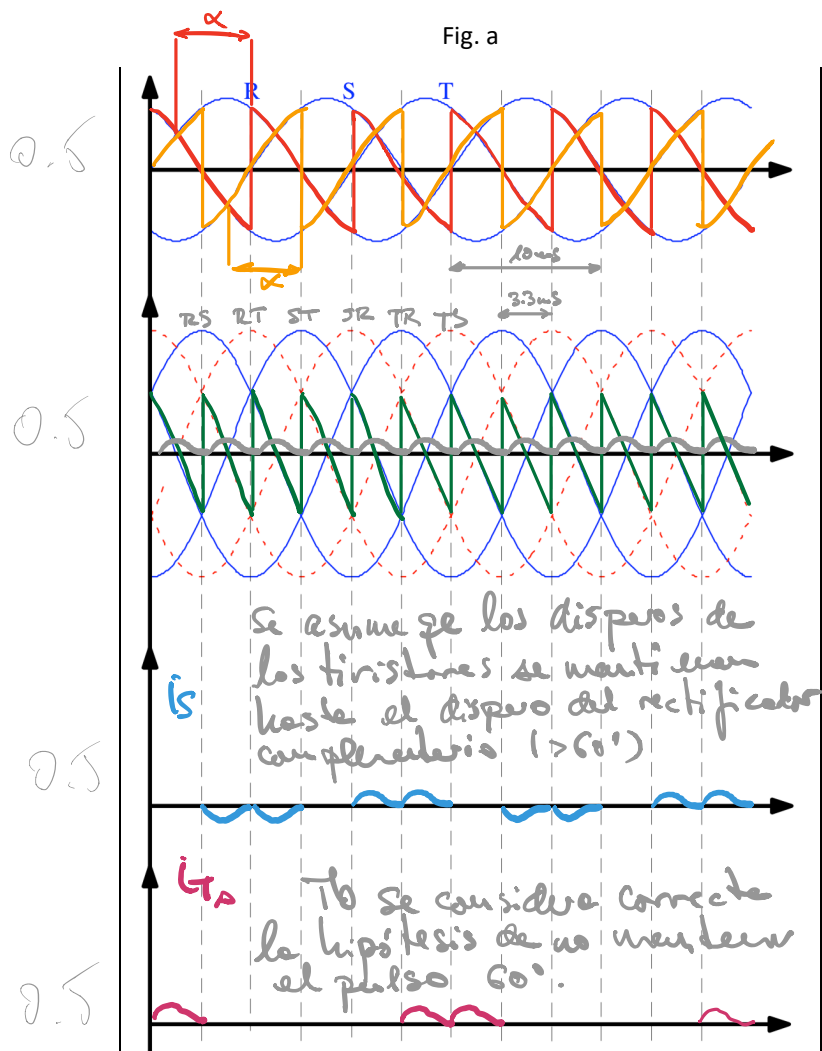 Fig. a
α
R S T
0.5
α
10ms
3.3ms
RS RT ST SR TR TS
0.5
Se asume qe los disparos de
los tiristores se mantienen
hasta el disparo del rectificador
complementario (>60°)
is
0.5
iTp
Tb se considera correcta
la hipótesis de no mantener
el pulso 60°.
0.5